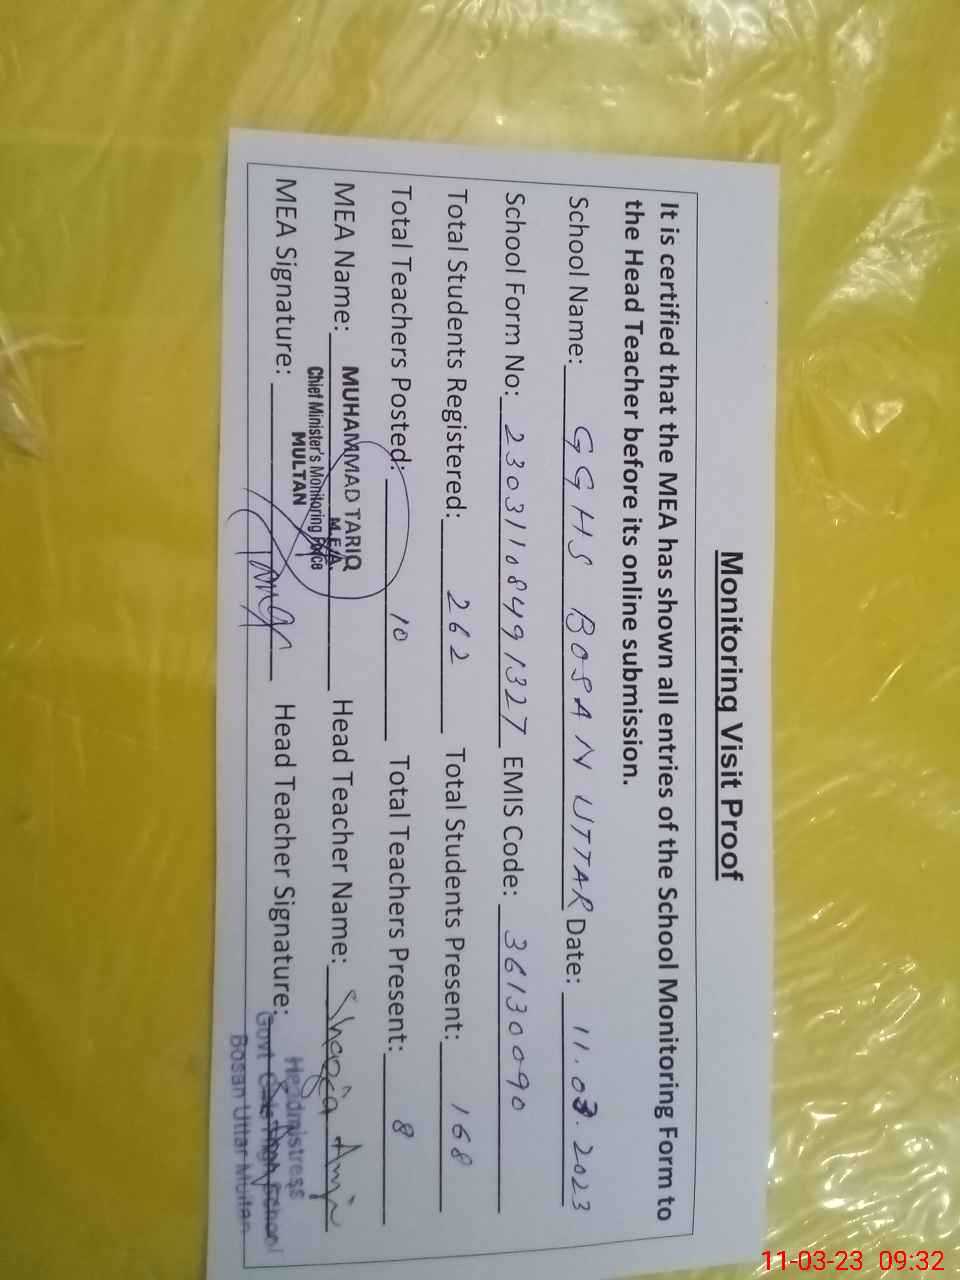 Monitoring Visit Proof
It is certified that the MEA has shown all entries of the School Monitoring Form to
the Head Teacher before its online submission.
School Name: GGHS BOSAN UTTAR Date: 11.03.2023
School Form No: 23031108491327 EMIS Code: 36130090
Total Students Registered: 262 Total Students Present: 168
Total Teachers Posted: 10 Total Teachers Present: 8
MEA Name: MUHAMMAD TARIQ Head Teacher Name: Amin
M.E.A.
Chief Minister's Monitoring Force
MULTAN
MEA Signature: Head Teacher Signature:
Headmistress
Govt Girls High School
Bosan Uttar Multan
11-03-23 09:32